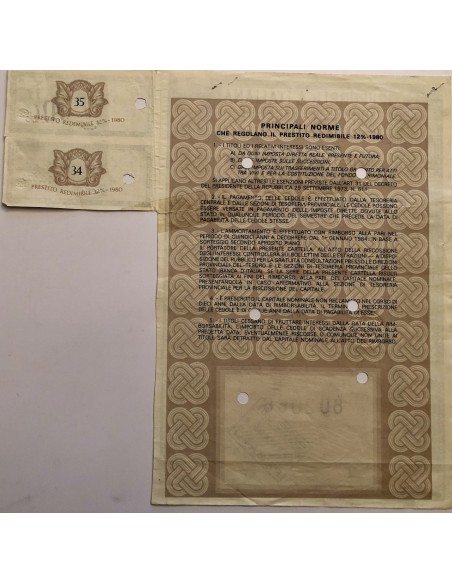 35
PRESTITO REDIMIBILE 12%-1980
34
PRESTITO REDIMIBILE 12%-1980
PRINCIPALI NORME
CHE REGOLANO IL PRESTITO REDIMIBILE 12%-1980
1. - I TITOLI ED I RELATIVI INTERESSI SONO ESENTI:
A) DA OGNI IMPOSTA DIRETTA REALE, PRESENTE E FUTURA;
IMPOSTE SULLE SUCCESSIONI;
IMPOSTA SUI TRASFERIMENTI A TITOLO PER ATTI
TRA VIVI E PER LA COSTITUZIONE DEL FONDO
SI APPLICANO ALTRESÌ LE ESENZIONI PREVISTE DALL'ART. 31 DEL DECRETO
DEL PRESIDENTE DELLA REPUBBLICA 29 SETTEMBRE 1973, N.
2. - IL PAGAMENTO DELLE CEDOLE È EFFETTUATO DALLA TESORERIA
CENTRALE E DALLE SEZIONI DI TESORERIA PROVINCIALE. LE CEDOLE POSSONO
ESSERE VERSATE IN PAGAMENTO DELLE IMPOSTE DIRETTE DOVUTE ALLO
STATO IN QUALUNQUE PERIODO DEL SEMESTRE CHE PRECEDE LA DATA DI
PAGABILITÀ DELLE CEDOLE STESSE.
3. - L'AMMORTAMENTO È EFFETTUATO CON RIMBORSO ALLA PARI NEL
PERIODO DI QUINDICI ANNI A DECORRERE DAL 1° GENNAIO 1984, IN BASE A
SORTEGGIO SECONDO APPOSITO PIANO.
IL PORTATORE DELLA PRESENTE CARTELLA ALL'ATTO DELLA RISCOSSIONE
DEGLI INTERESSI CONTROLLERÀ SUI BOLLETTINI DELLE ESTRAZIONI - A DISPO-
SIZIONE DEL PUBBLICO PER LA GRATUITA CONSULTAZIONE PRESSO LE DIREZIONI
PROVINCIALI DEL TESORO E LE SEZIONI DI TESORERIA PROVINCIALE DELLO
STATO (BANCA D'ITALIA) SE LA SERIE DELLA PRESENTE CARTELLA RISULTI
SORTEGGIATA AI FINI DEL RIMBORSO, ALLA PARI, DEL CAPITALE NOMINALE,
PRESENTANDOLA IN CASO AFFERMATIVO ALLA SEZIONE DI TESORERIA
PROVINCIALE PER LA RISCOSSIONE DEL CAPITALE.
4. - È PRESCRITTO IL CAPITALE NOMINALE NON RECLAMATO NEL CORSO DI
DIECI ANNI DALLA DATA DI RIMBORSABILITÀ. IL TERMINE DI PRESCRIZIONE
DELLE CEDOLE È DI ANNI DALLA DATA DI PAGABILITÀ DI ESSE.
5. - I TITOLI CESSANO DI FRUTTARE INTERESSI DALLA DATA DELLA RIM-
BORSABILITÀ. L'IMPORTO DELLE CEDOLE DI SCADENZA SUCCESSIVA ALLA
PREDETTA DATA, EVENTUALMENTE RISCOSSE O, COMUNQUE, NON UNITE AI
TITOLI SARÀ DETRATTO DAL CAPITALE NOMINALE ALL'ATTO DEL RIMBORSO.